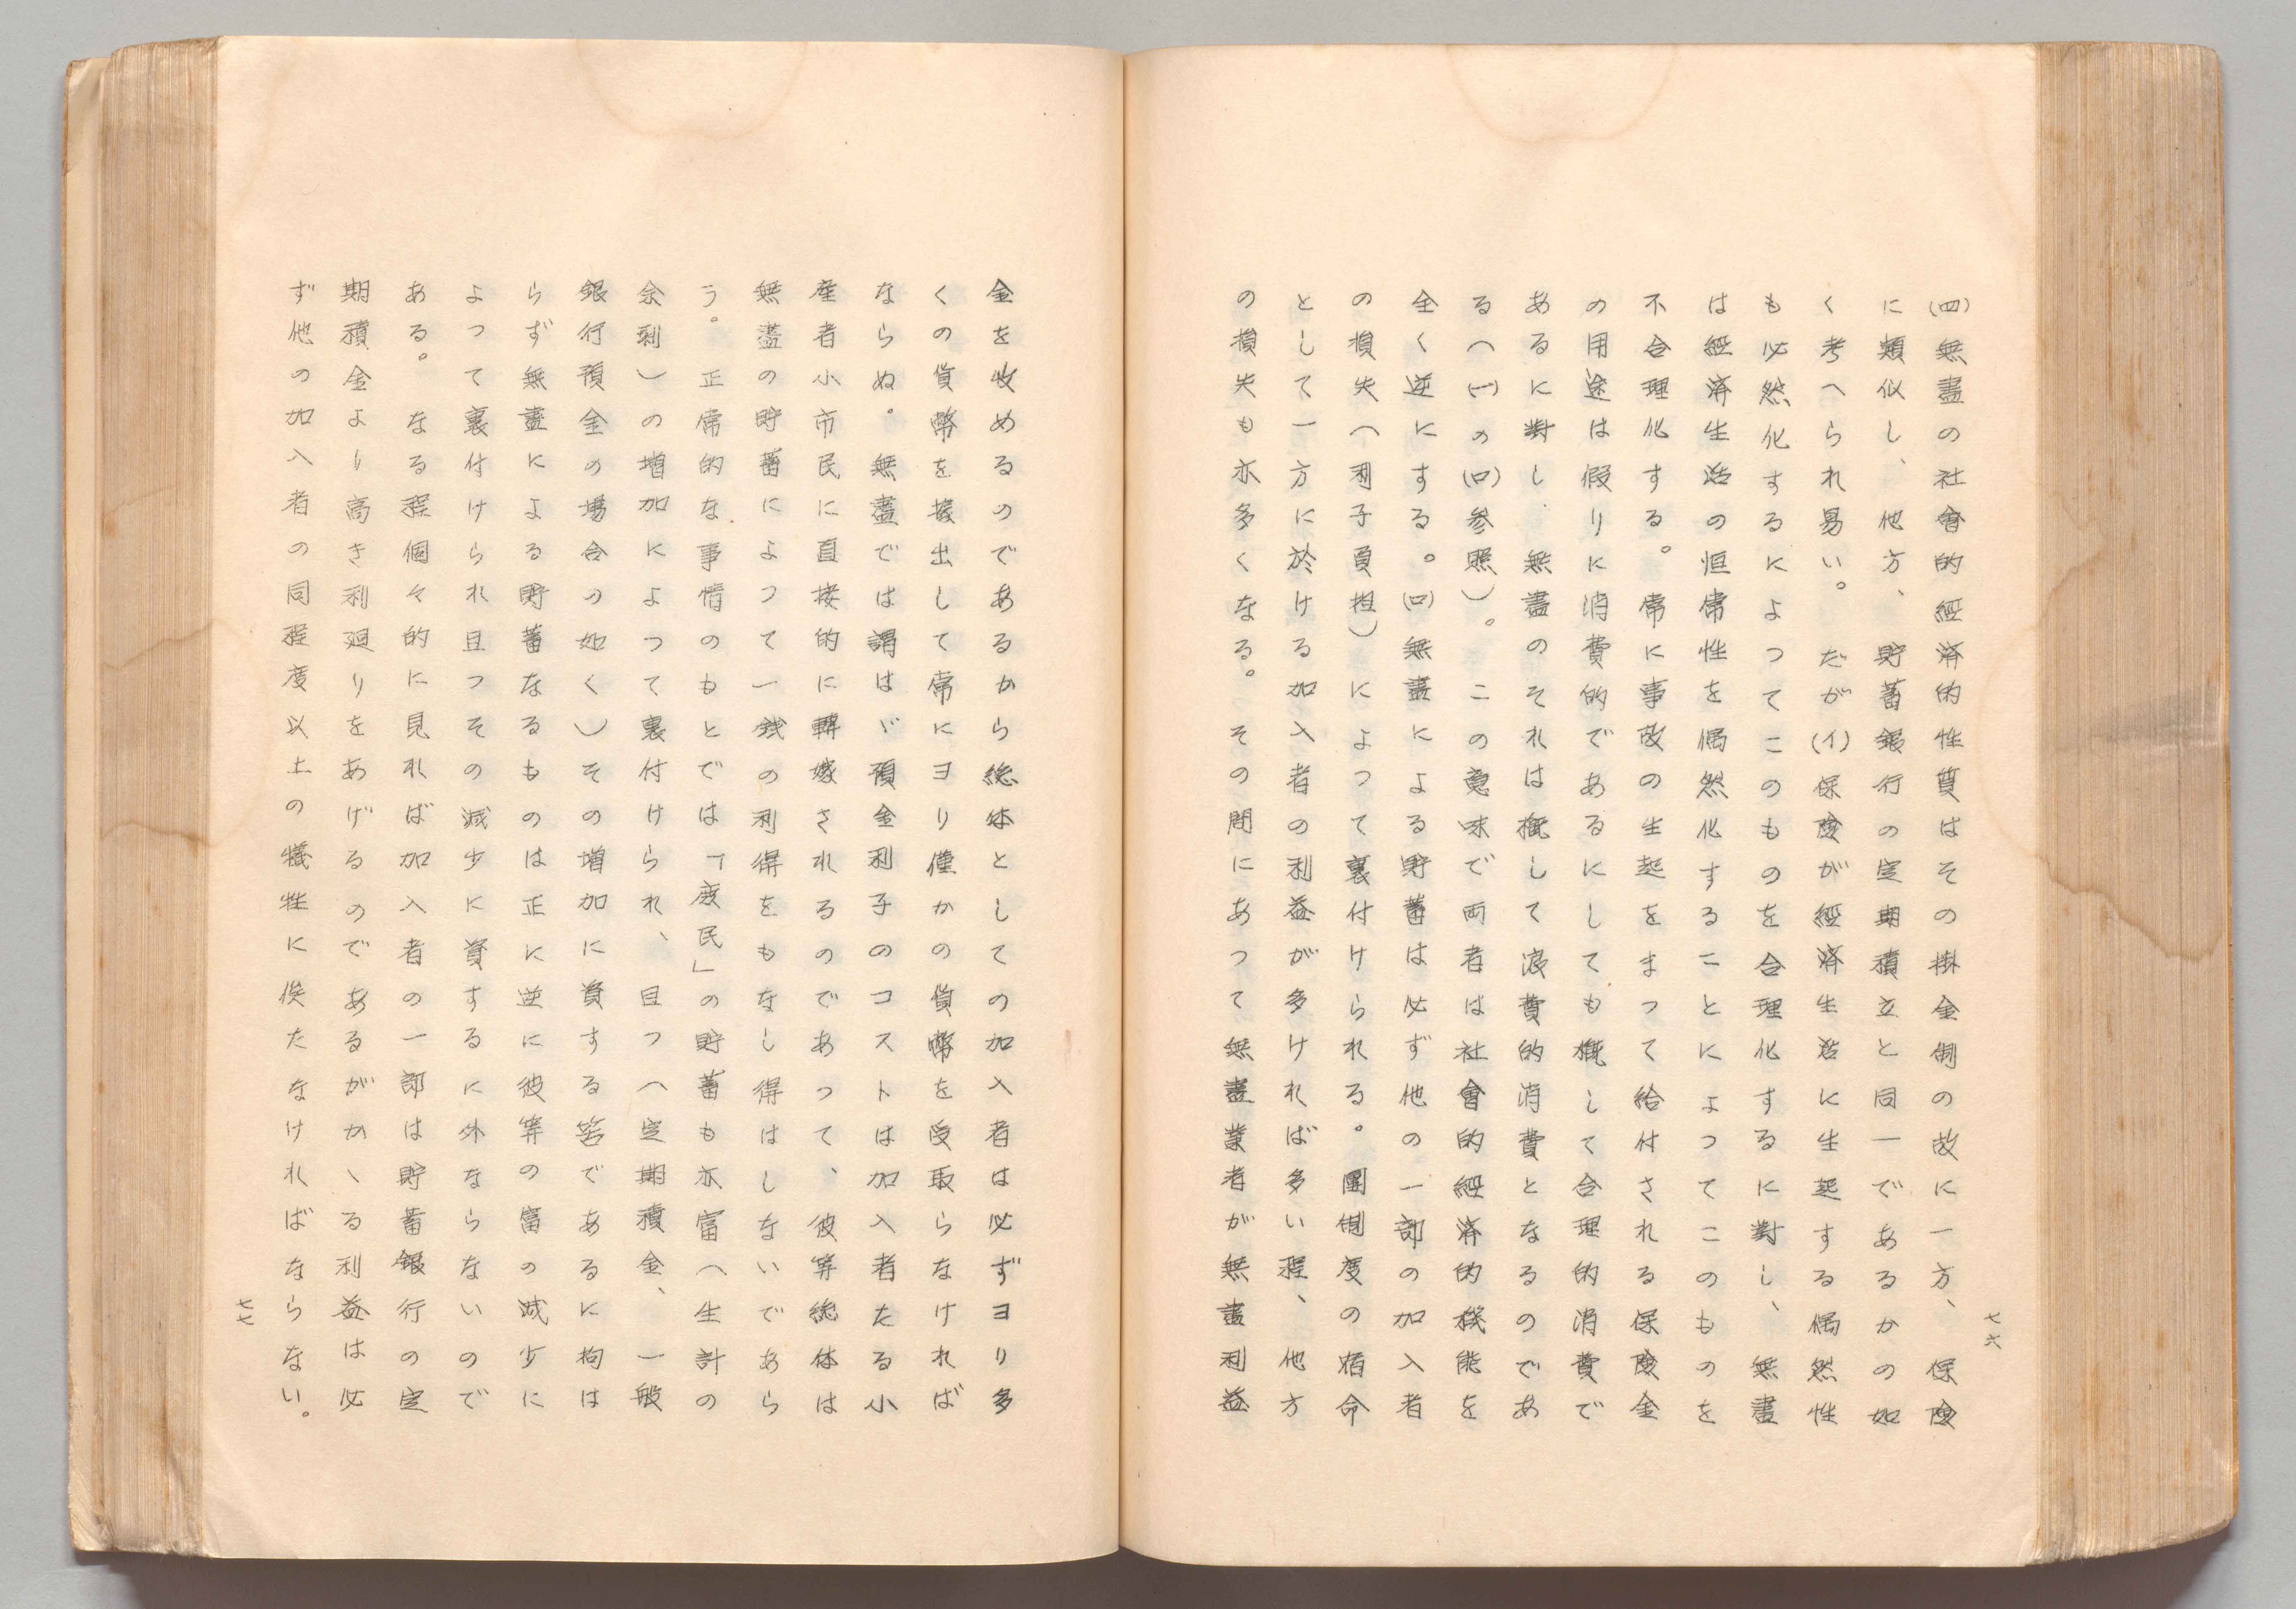 七六
(四)無盡の社會的經済的性質はその掛金制の故に一方、保険
に類似し、他方、貯蓄銀行の定期積立と同一であるかの如
く考へられ易い。だが(イ)保険が經済生活に生起する偶然性
も必然化するによつてこのものを合理化するに對し、無盡
は經済生活の恒常性を偶然化することによつてこのものを
不合理化する。常に事故の生起をまつて給付される保険金
の用途は假りに消費的であるにしても概して合理的消費で
あるに對し、無盡のそれは概して浪費的消費となるのであ
る(（一)の(ロ)参照)。この意味で両者は社會的經済的機能を
全く逆にする。(ロ)無盡による貯蓄は必ず他の一部の加入者
の損失(利子負担)によつて裏付けられる。團制度の宿命
として一方に於ける加入者の利益が多ければ多い程、他方
の損失も亦多くなる。その間にあつて無盡業者が無盡利益
金を收めるのであるから総体としての加入者は必ずヨリ多
くの貨幣を拠出して常にヨリ僅かの貨幣を受取らなければ
ならぬ。無盡では謂はゞ預金利子のコストは加入者たる小
産者小市民に直接的に轉嫁されるのであつて、彼等総体は
無盡の貯蓄によつて一銭の利得をもなし得はしないであら
う。正常的な事情のもとでは「庶民」の貯蓄も亦富(生計の
余剰)の増加によつて裏付けられ、且つ(定期積金、一般
銀行預金の場合の如く)その増加に資する筈であるに拘は
らず無盡による貯蓄なるものは正に逆に彼等の富の減少に
よつて裏付けられ且つその減少に資するに外ならないので
ある。なる程個々的に見れば加入者の一部は貯蓄銀行の定
期積金より高き利廻りをあげるのであるがかゝる利益は必
ず他の加入者の同程度以上の犠牲に俟たなければならない。
七七